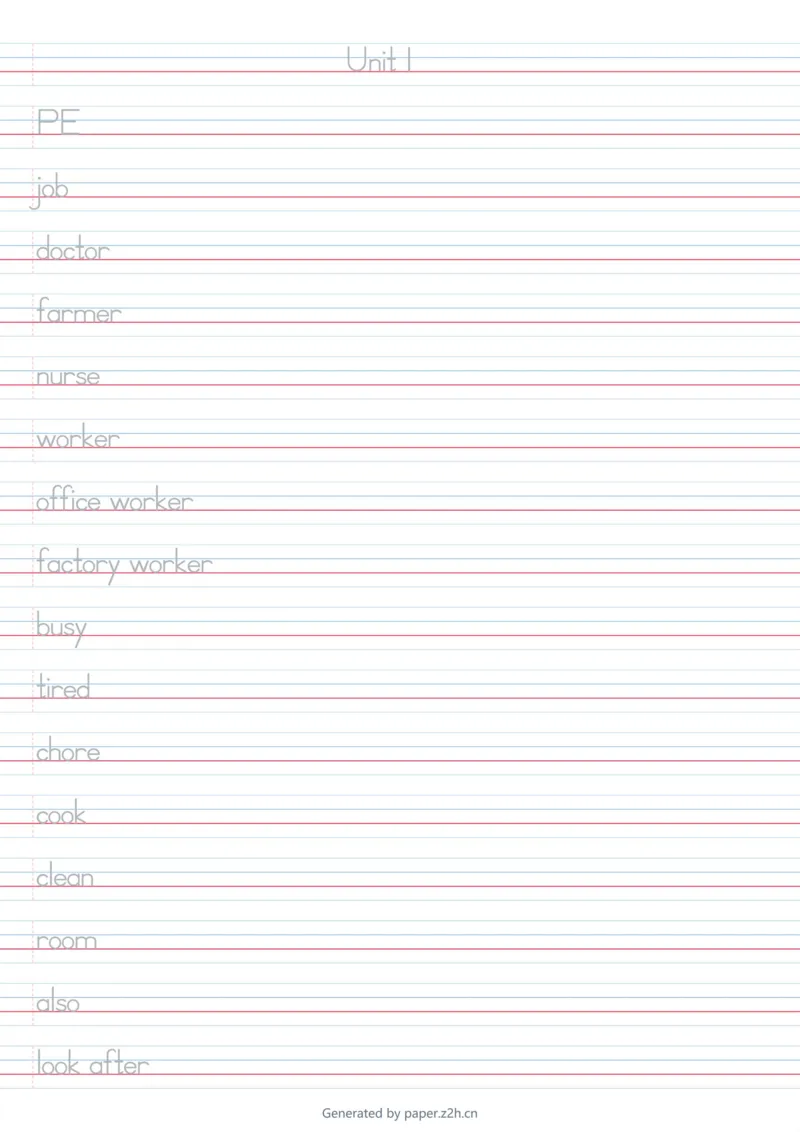 Unit 1
PE
job
doctor
farmer
nurse
worker
office worker
factory worker
busy
tired
chore
cook
clean
room
also
look after
Generated by paper.z2h.cn